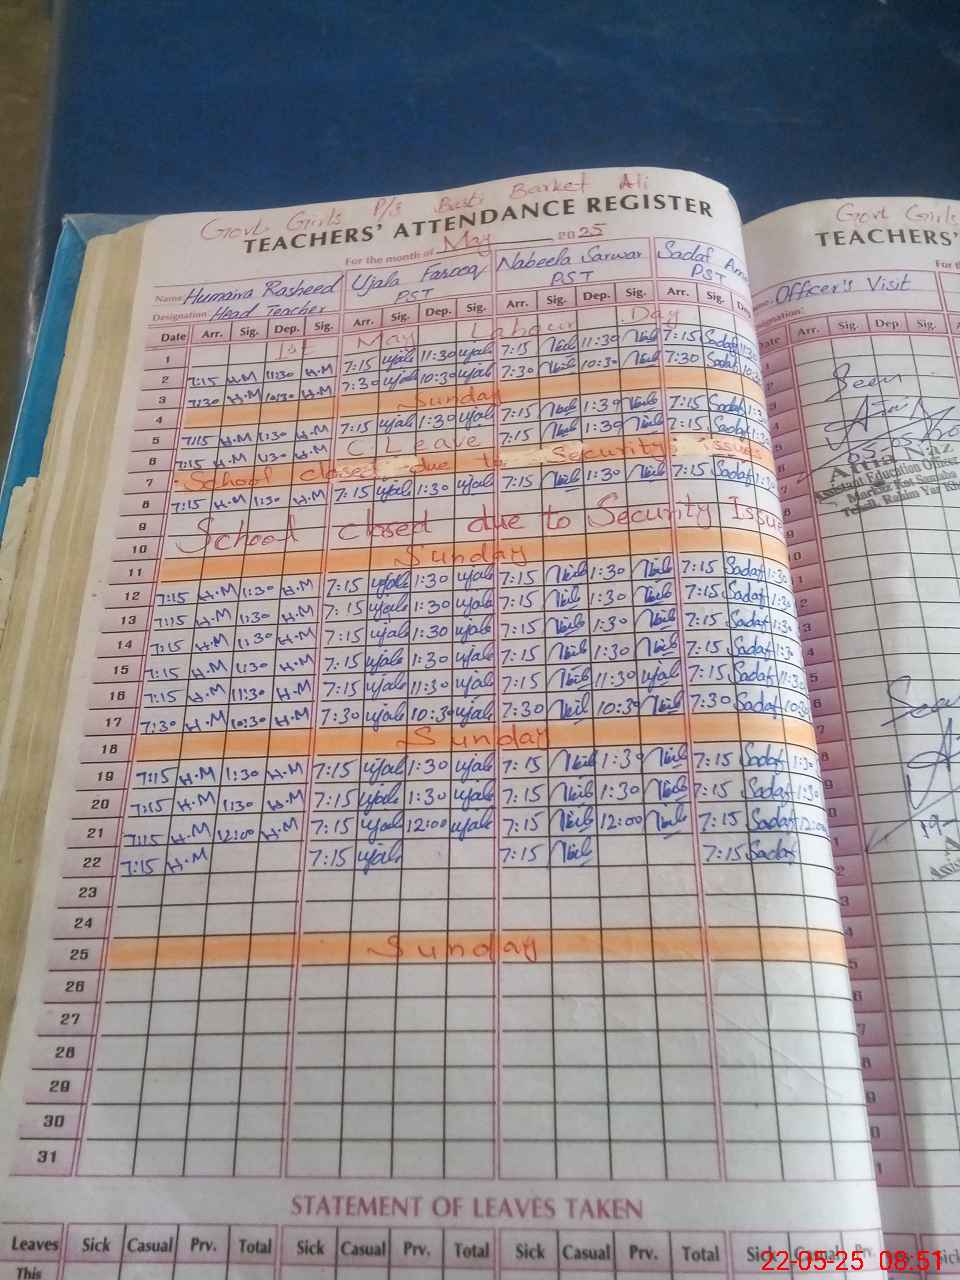 Govt Girls P/s Basti Barket Ali
TEACHERS' ATTENDANCE REGISTER
For the month of May 2025
Name Humaira Rasheed Ujala Farooq Nabeela Sarwar Sadaf
Designation Head Teacher PST PST PST
Date Arr. Sig. Dep. Sig. Arr. Sig. Dep. Sig. Arr. Sig. Dep. Sig. Arr. Sig.
1 1st May Labour Day
2 7:15 H.M 11:30 H.M 7:15 ujala 11:30 ujala 7:15 11:30 7:15 Sadaf
3 7:30 H.M 10:30 H.M 7:30 ujala 10:30 ujala 7:30 10:30 7:30 Sadaf
4 Sunday
5 7:15 H.M 1:30 H.M 7:15 ujala 1:30 ujala 7:15 1:30 7:15 Sadaf
6 7:15 H.M 1:30 H.M C. Leave 7:15 1:30 7:15 Sadaf
7 School closed due to Security issues
8 7:15 H.M 1:30 H.M 7:15 ujala 1:30 ujala 7:15 1:30 7:15 Sadaf
9 School closed due to Security Issue
10
11 Sunday
12 7:15 H.M 1:30 H.M 7:15 ujala 1:30 ujala 7:15 1:30 7:15 Sadaf 1:30
13 7:15 H.M 1:30 H.M 7:15 ujala 1:30 ujala 7:15 1:30 7:15 Sadaf 1:30
14 7:15 H.M 1:30 H.M 7:15 ujala 1:30 ujala 7:15 1:30 7:15 Sadaf
15 7:15 H.M 1:30 H.M 7:15 ujala 1:30 ujala 7:15 1:30 7:15 Sadaf
16 7:15 H.M 11:30 H.M 7:15 ujala 11:30 ujala 7:15 11:30 ujala 7:15 Sadaf 11:30
17 7:30 H.M 10:30 H.M 7:30 ujala 10:30 ujala 7:30 10:30 7:30 Sadaf 10:30
18 Sunday
19 7:15 H.M 1:30 H.M 7:15 ujala 1:30 ujala 7:15 1:30 7:15 Sadaf 1:30
20 7:15 H.M 1:30 H.M 7:15 ujala 1:30 ujala 7:15 1:30 7:15 Sadaf 1:30
21 7:15 H.M 12:00 H.M 7:15 ujala 12:00 ujala 7:15 12:00 7:15 Sadaf 12:00
22 7:15 H.M 7:15 ujala 7:15 7:15 Sadaf
23
24
25 Sunday
26
27
28
29
30
31
STATEMENT OF LEAVES TAKEN
Leaves Sick Casual Prv. Total Sick Casual Prv. Total Sick Casual Prv. Total Sick Casual Prv.
This
Govt Girls
TEACHERS'
Officer's Visit
Arr. Sig. Dep Sig.
Seen
Assistant Education Officer
Seen
22-05-25 08:51